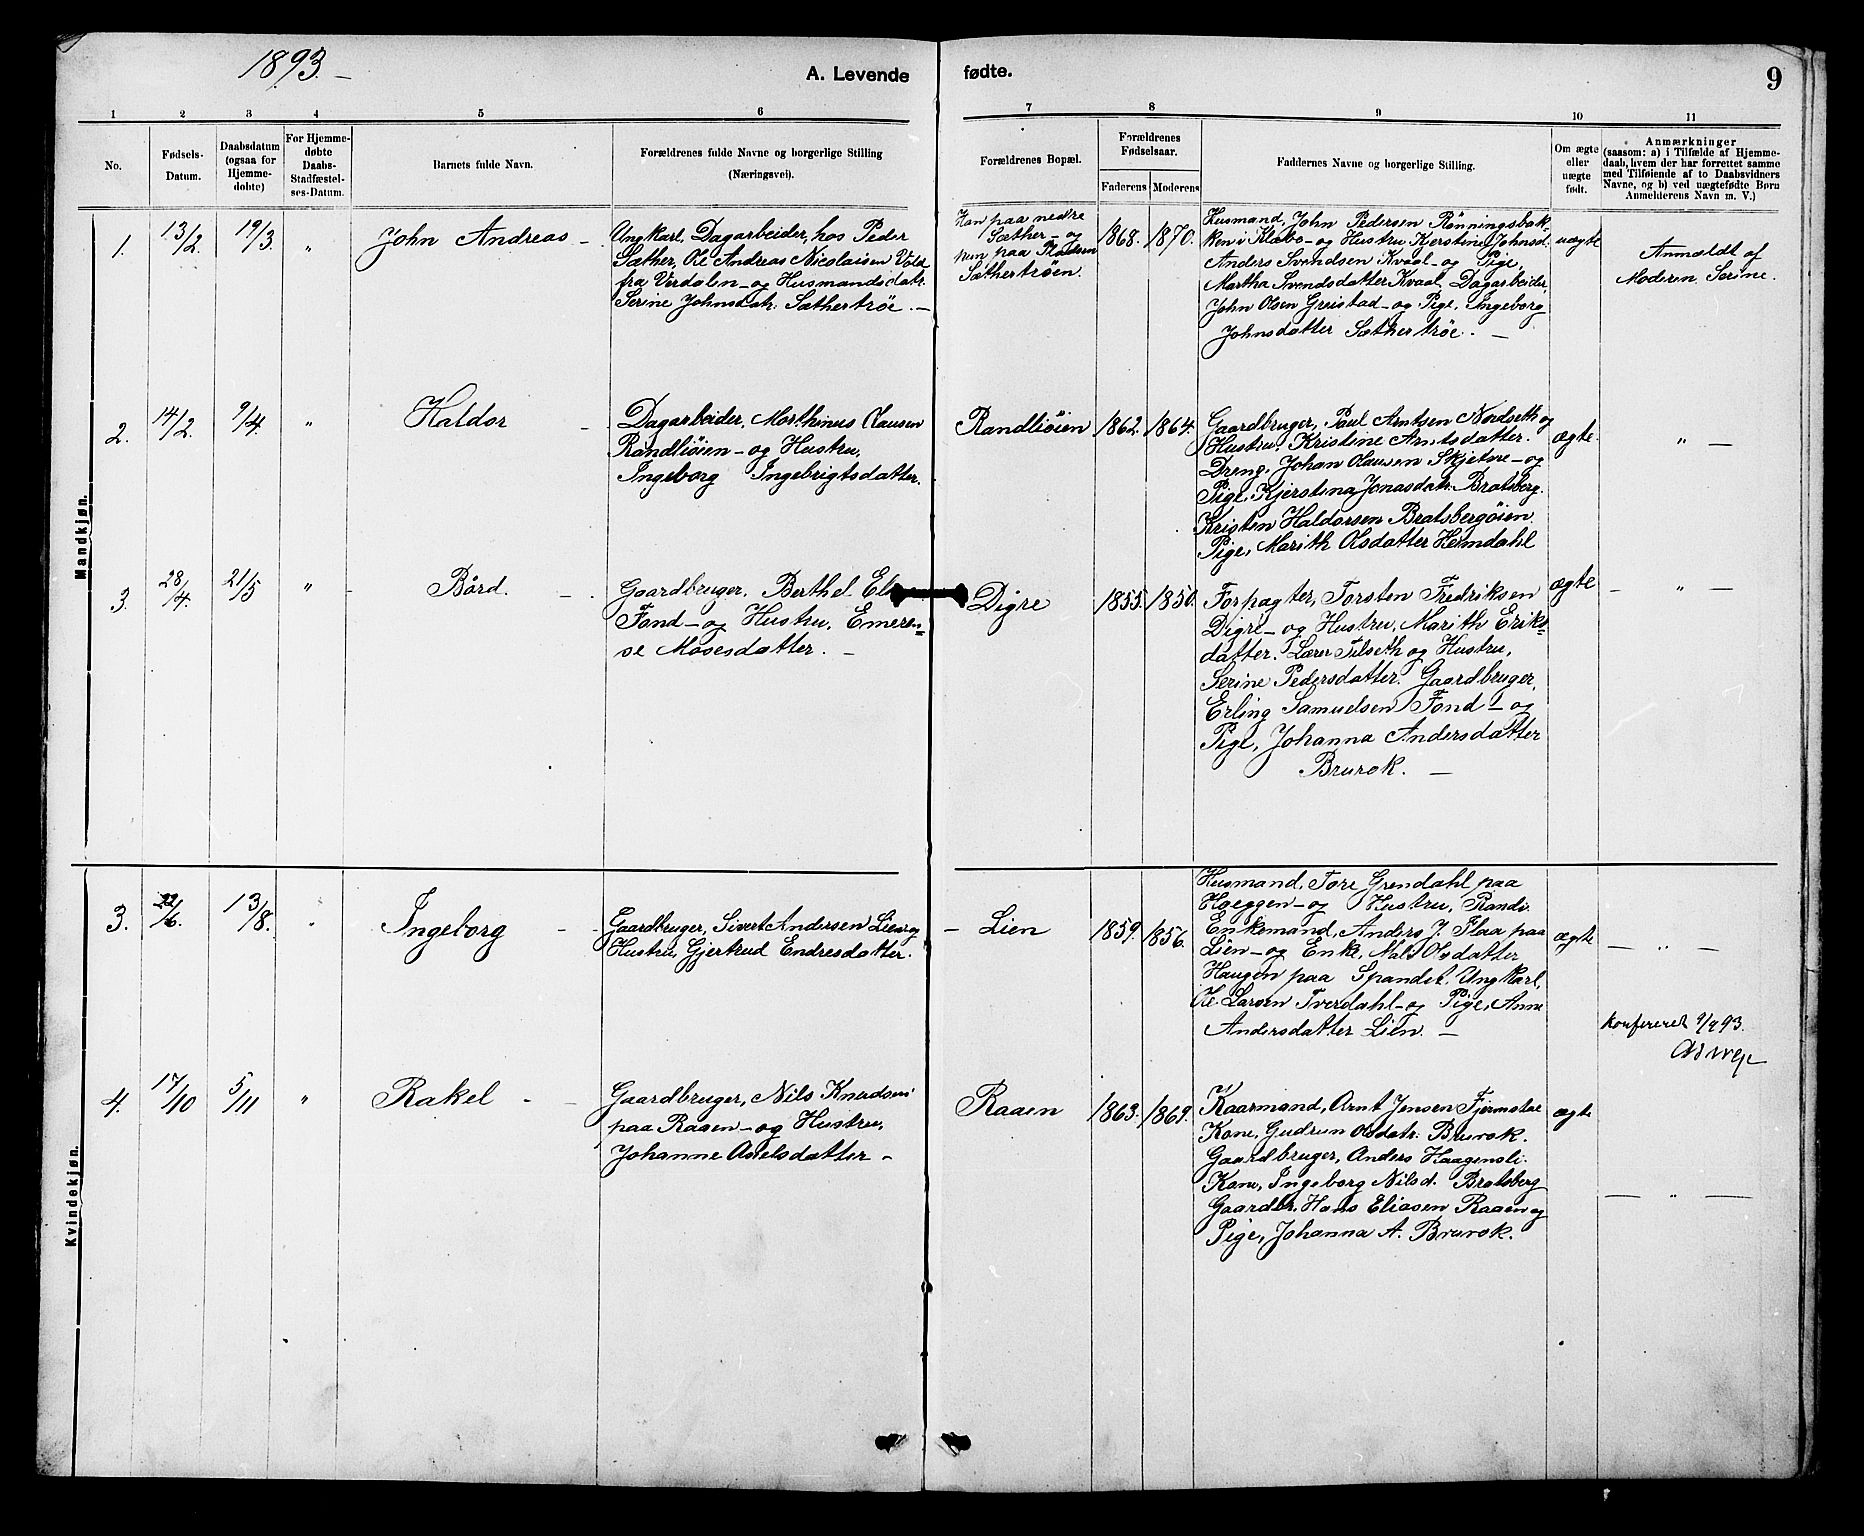 1893.
A. Levende fødte.
9
1 2 3 4 5 6 7 8 9 10 11
No.
Fødsels-
Datum.
Daabsdatum
(ogsaa for
Hjemme-
døbte)
For Hjemme-
døbte
Daabs-
Stadfæstel-
ses-Datum.
Barnets fulde Navn.
Forældrenes fulde Navne og borgerlige Stilling
(Næringsvei).
Forældrenes Bopæl.
Forældrenes
Fødselsaar.
Faderens Moderens
Faddernes Navne og borgerlige Stilling.
Om ægte
eller
uægte
født.
Anmærkninger
(saasom: a) i Tilfælde af Hjemme-
daab, hvem der har forrettet samme
med Tilføiende af to Daabsvidners
Navne, og b) ved uægtefødte Børn
Anmelderens Navn m. V.)
Mandkjøn.
1.
13/2
19/3
"
John Andreas
Ungkarl, Dagarbeider, hos Peder
Sæther, Ole Andreas Nicolaisen Vold
fra Verdalen - og Husmandsdatr.
Serine Johnsdatr. Sæthertrøe. -
Han paa nedre
Sæther - og
hun paa Pladsen
Sæthertrøen.
1868. 1870.
Husmand, John Pedersen Rønningsbak-
ken i Klæbo - og Hustru Kjerstine Johnsd.
Anders Svendsen Kvaal - og Pige,
Martha Svendsdatter Kvaal, Dagarbeider,
John Olsen Greistad - og Pige, Ingeborg
Johnsdatter Sæthertrøe. -
uægte
Anmeldt af
Moderen Serine.
2.
14/2
9/4
"
Haldor
Dagarbeider, Morthinus Olausen
Randliøien - og Hustru,
Ingeborg Ingebrigtsdatter.
Randliøien
1862. 1864.
Gaardbruger, Paul Arntsen Nordseth og
Hustru, Kristine Arntsdatter.
Dreng, Johan Olausen Skjetne - og
Pige, Kjerstina Jonasdatr. Bratsberg.
Kristen Haldorsen Bratsbergøien.
Pige, Marith Olsdatter Heimdahl
ægte.
" -
3.
28/4.
21/5
"
Bård.
Gaardbruger, Berthel
Fond - og Hustru, Emeren-
se Mosesdatter. -
Digre
1855. 1850.
Forpagter, Torsten Fredriksen
Digre - og Hustru, Marith Eriks-
datter. Lærer Tilseth og Hustru,
Serine Pedersdatter. Gaardbruger,
Erling Samuelsen Fond - og
Pige, Johanna Andersdatter
Brurok. -
ægte
- " -
Kvindekjøn.
3.
22/6.
13/8.
"
Ingeborg
Gaardbruger, Sivert Andersen Lien og
Hustru, Gjertrud Endresdatter.
Lien
1859. 1856.
Husmand, Tore Grendahl paa
Hoeggen - og Hustru, Randi.
Enkemand, Anders J. Flaa paa
Lien - og Enke, Mali Olsdatter
Haugen paa Spandet, Ungkarl,
Ole Larsen Tverdahl - og Pige, Anne
Andersdatter Lien. -
ægte
- " -
Konfereret 9/7 93.
4.
17/10
5/11
"
Rakel
Gaardbruger, Nils Knudsen
paa Raaen - og Hustru,
Johanne Axelsdatter -
Raaen
1863. 1869.
Kaarmand, Arnt Jensen Fjermstae
Kone, Gudrun Olsdatr. Brurok.
Gaardbruger, Anders Haagensli.
Kone, Ingeborg Nilsd. Bratsberg
Gaardbr. Hans Eliasen Raaen og
Pige, Johanna A. Brurok.
ægte
- " -